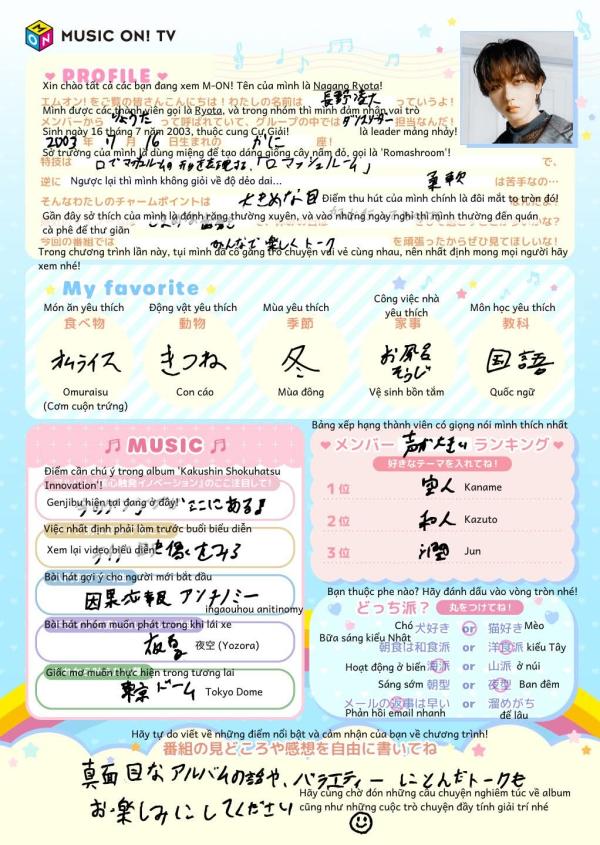 MUSIC ON! TV
PROFILE
Xin chào tất cả các bạn đang xem M-ON! Tên của mình là Nagano Ryota!
エムオン!をご覧の皆さんこんにちは!わたしの名前は 長野凌大 っていうよ!
Mình được các thành viên gọi là Ryota, và trong nhóm thì mình đảm nhận vai trò
メンバーから りょうた って呼ばれていて、グループの中では ダンスリーダー 担当なんだ!
Sinh ngày 16 tháng 7 năm 2003, thuộc cung Cự Giải!
là leader mảng nhảy!
2003 年 7 月 16 日生まれの かに 座!
Sở trường của mình là dùng miệng để tạo dáng giống cây nấm đỏ, gọi là 'Romashroom'!
特技は 口でマッシュルームの形を表現する、「ロマッシュルーム」 で、
逆に Ngược lại thì mình không giỏi về độ dẻo dai... 柔軟 は苦手なの…
そんなわたしのチャームポイントは 大きめな目 Điểm thu hút của mình chính là đôi mắt to tròn đó!
Gần đây sở thích của mình là đánh răng thường xuyên, và vào những ngày nghỉ thì mình thường đến quán
cà phê để thư giãn
今回の番組では みんなで楽しくトーク を頑張ったからぜひ見てほしいな!
Trong chương trình lần này, tụi mình đã cố gắng trò chuyện vui vẻ cùng nhau, nên nhất định mong mọi người hãy
xem nhé!
My favorite
Món ăn yêu thích
Động vật yêu thích
Mùa yêu thích
Công việc nhà
yêu thích
Môn học yêu thích
食べ物
動物
季節
家事
教科
オムライス
きつね
冬
お風呂
そうじ
国語
Omuraisu
(Cơm cuộn trứng)
Con cáo
Mùa đông
Vệ sinh bồn tắm
Quốc ngữ
MUSIC
Điểm cần chú ý trong album 'Kakushin Shokuhatsu
Innovation'!
心触発イノベーション」のここに注目して!
Genjibu hiện tại đang ở đây!
ここにある!
Việc nhất định phải làm trước buổi biểu diễn
Xem lại video biểu diễn
Bài hát gợi ý cho người mới bắt đầu
因果応報アンチノミー
ingaouhou anitinomy
Bài hát nhóm muốn phát trong khi lái xe
夜空
夜空 (Yozora)
Giấc mơ muốn thực hiện trong tương lai
東京ドーム
Tokyo Dome
Bảng xếp hạng thành viên có giọng nói mình thích nhất
メンバー 声が大きい ランキング
好きなテーマを入れてね!
1位 空人 Kaname
2位 和人 Kazuto
3位 潤 Jun
Bạn thuộc phe nào? Hãy đánh dấu vào vòng tròn nhé!
どっち派? 丸をつけてね!
Chó 犬好き or 猫好き Mèo
Bữa sáng kiểu Nhật
朝食は和食派 or 洋食派 kiểu Tây
Hoạt động ở biển 海派 or 山派 ở núi
Sáng sớm 朝型 or 夜型 Ban đêm
メールの返事は早い or 溜めがち
Phản hồi email nhanh
để lâu
Hãy tự do viết về những điểm nổi bật và cảm nhận của bạn về chương trình!
番組の見どころや感想を自由に書いてね
真面目なアルバムの話や、バラエティーにとんだトークも
お楽しみにしてください
Hãy cùng chờ đón những câu chuyện nghiêm túc về album
cũng như những cuộc trò chuyện đầy tính giải trí nhé